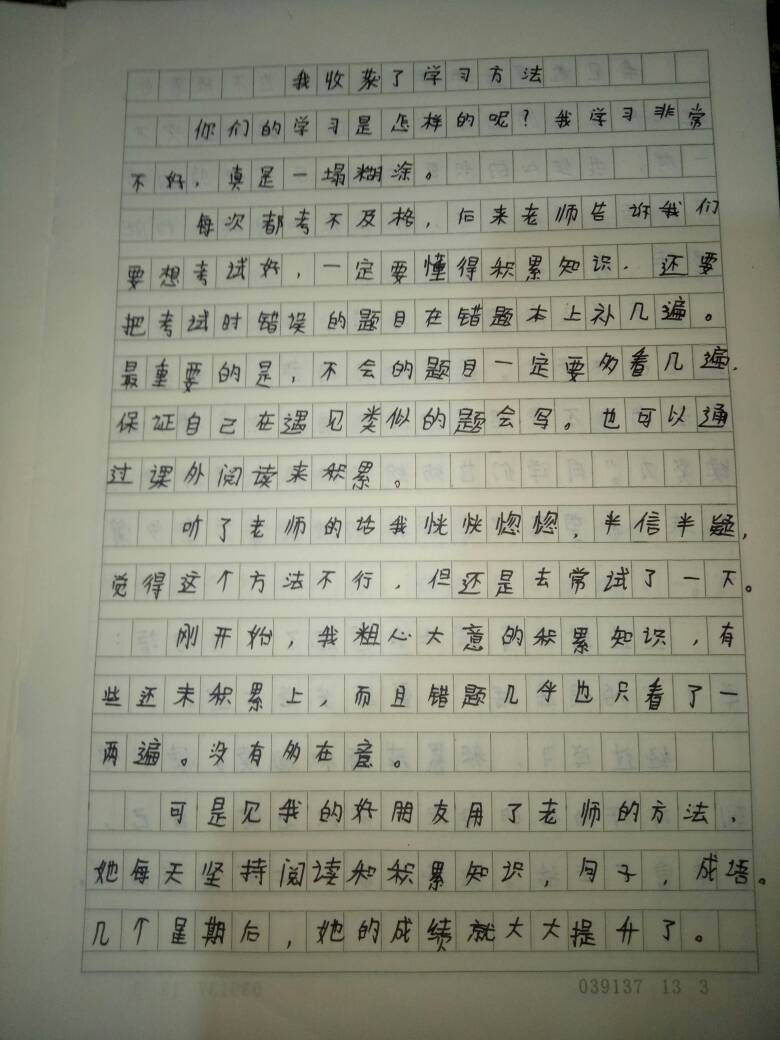 我收获了学习方法
你们的学习是怎样的呢？我学习非常
不好，真是一塌糊涂。
每次都考不及格，后来老师告诉我们
要想考试好，一定要懂得积累知识，还要
把考试时错误的题目在错题本上补几遍。
最重要的是，不会的题目一定要多看几遍，
保证自己在遇见类似的题会写。也可以通
过课外阅读来积累。
听了老师的话我恍恍惚惚，半信半疑，
觉得这个方法不行，但还是去常试了一下。
刚开始，我粗心大意的积累知识，有
些还未积累上，而且错题几乎也只看了一
两遍。没有多在意。
可是见我的好朋友用了老师的方法，
她每天坚持阅读和积累知识，句子，成语。
几个星期后，她的成绩就大大提升了。
039137 13 3